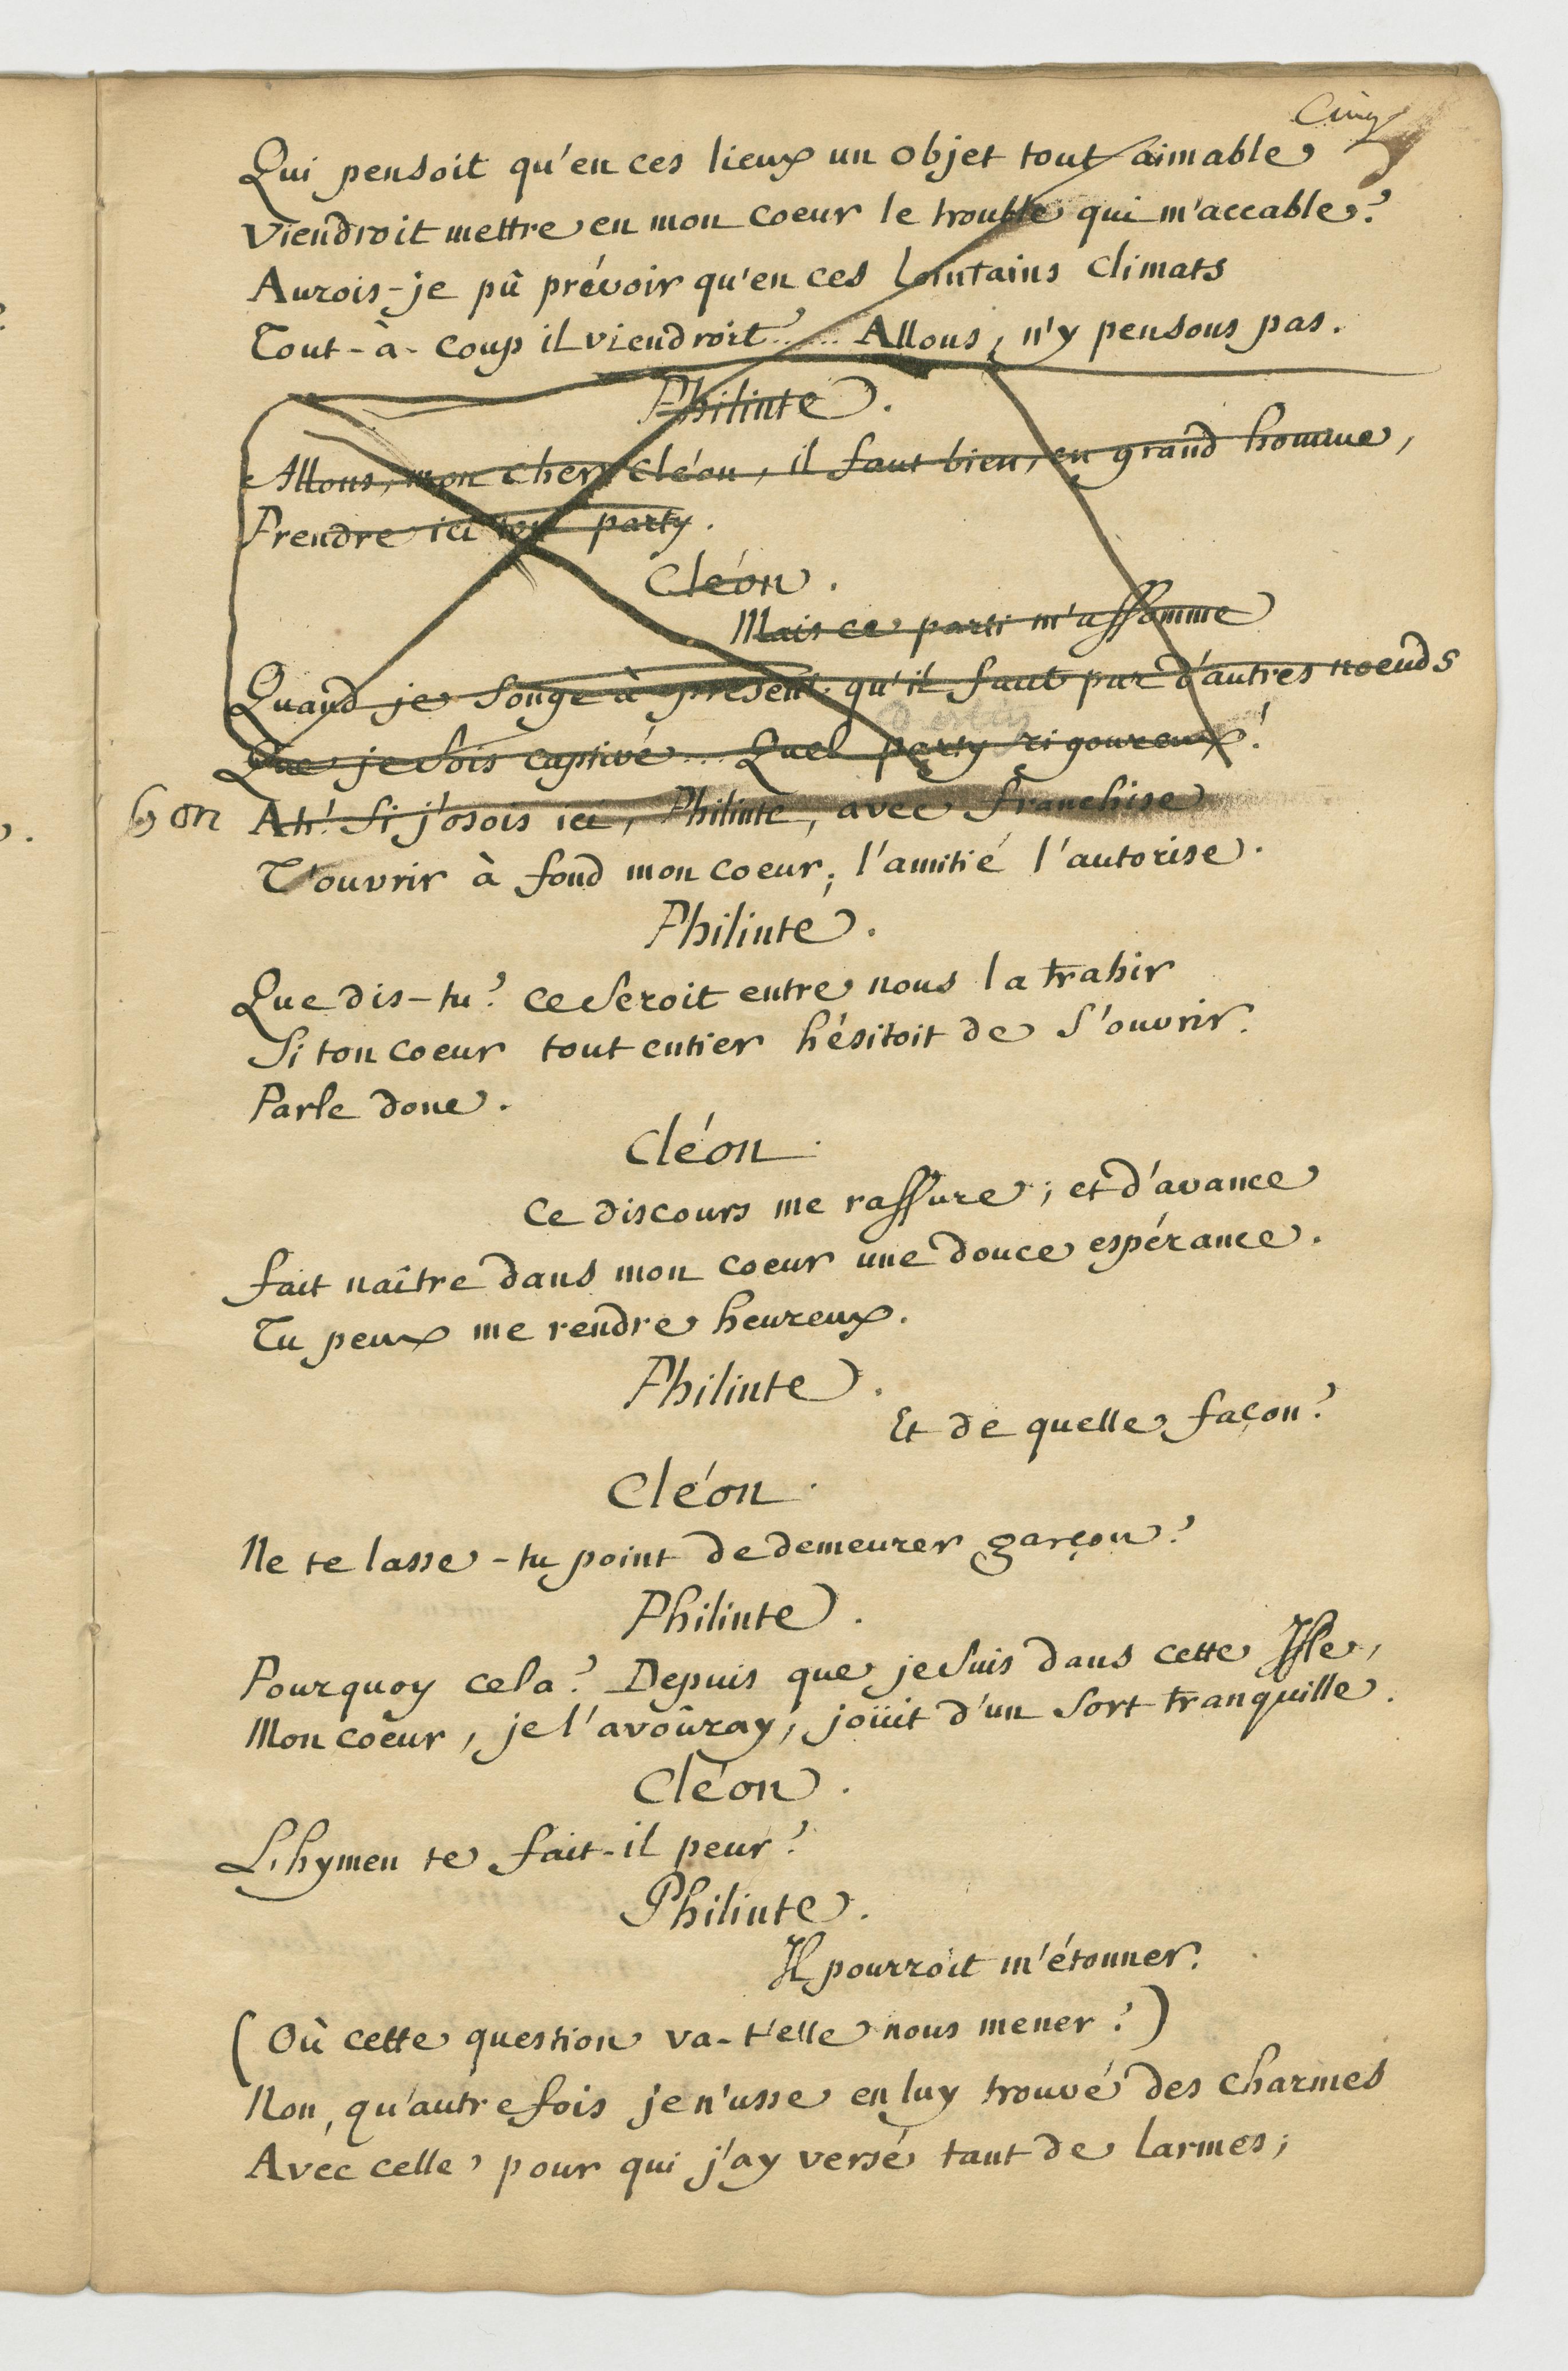 Cinq
Qui pensoit qu'en ces lieux un objet tout aimable
Viendroit mettre en mon coeur le trouble qui m'accable?
Aurois-je pû prévoir qu'en ces lointains climats
Tout-à-coup il viendroit...... Allons, n'y pensons pas.
Philinte.
Allons, mon cher Cléon, il faut bien, en grand homme,
Prendre ici ton party.
Cléon.
Mais ce parti m'assomme
Quand je songe à présent qu'il faut par d'autres noeuds
Que je sois captivé... Quel party rigoureux!
bon Ah! Si j'osois ici, Philinte, avec franchise
T'ouvrir à fond mon coeur; l'amitié l'autorise.
Philinte.
Que dis-tu? ce seroit entre nous la trahir
Si ton coeur tout entier hésitoit de s'ouvrir.
Parle donc.
Cléon.
Ce discours me rassure; et d'avance
fait naître dans mon coeur une douce espérance.
Tu peux me rendre heureux.
Philinte.
Et de quelle façon?
Cléon.
Ne te lasse-tu point de demeurer garçon?
Philinte.
Pourquoy cela? Depuis que je suis dans cette Isle,
Mon coeur, je l'avoûray, joüit d'un sort tranquille.
Cléon.
L'hymen te fait-il peur?
Philinte.
Il pourroit m'étonner.
(Où cette question va-t'elle nous mener?)
Non, qu'autrefois je n'usse en luy trouvé des charmes
Avec celle pour qui j'ay versé tant de larmes;